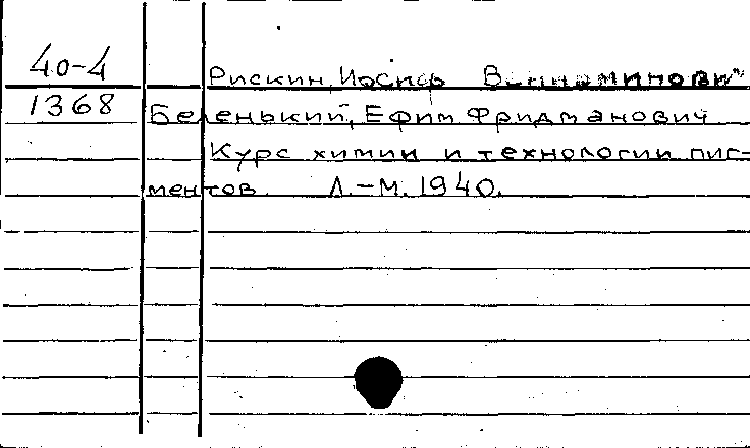 40-4
Рискин, Иосиф Вениаминович
1368
Беленький, Ефим Фридманович
Курс химии и технологии пиг-
ментов. Л.-М. 1940.